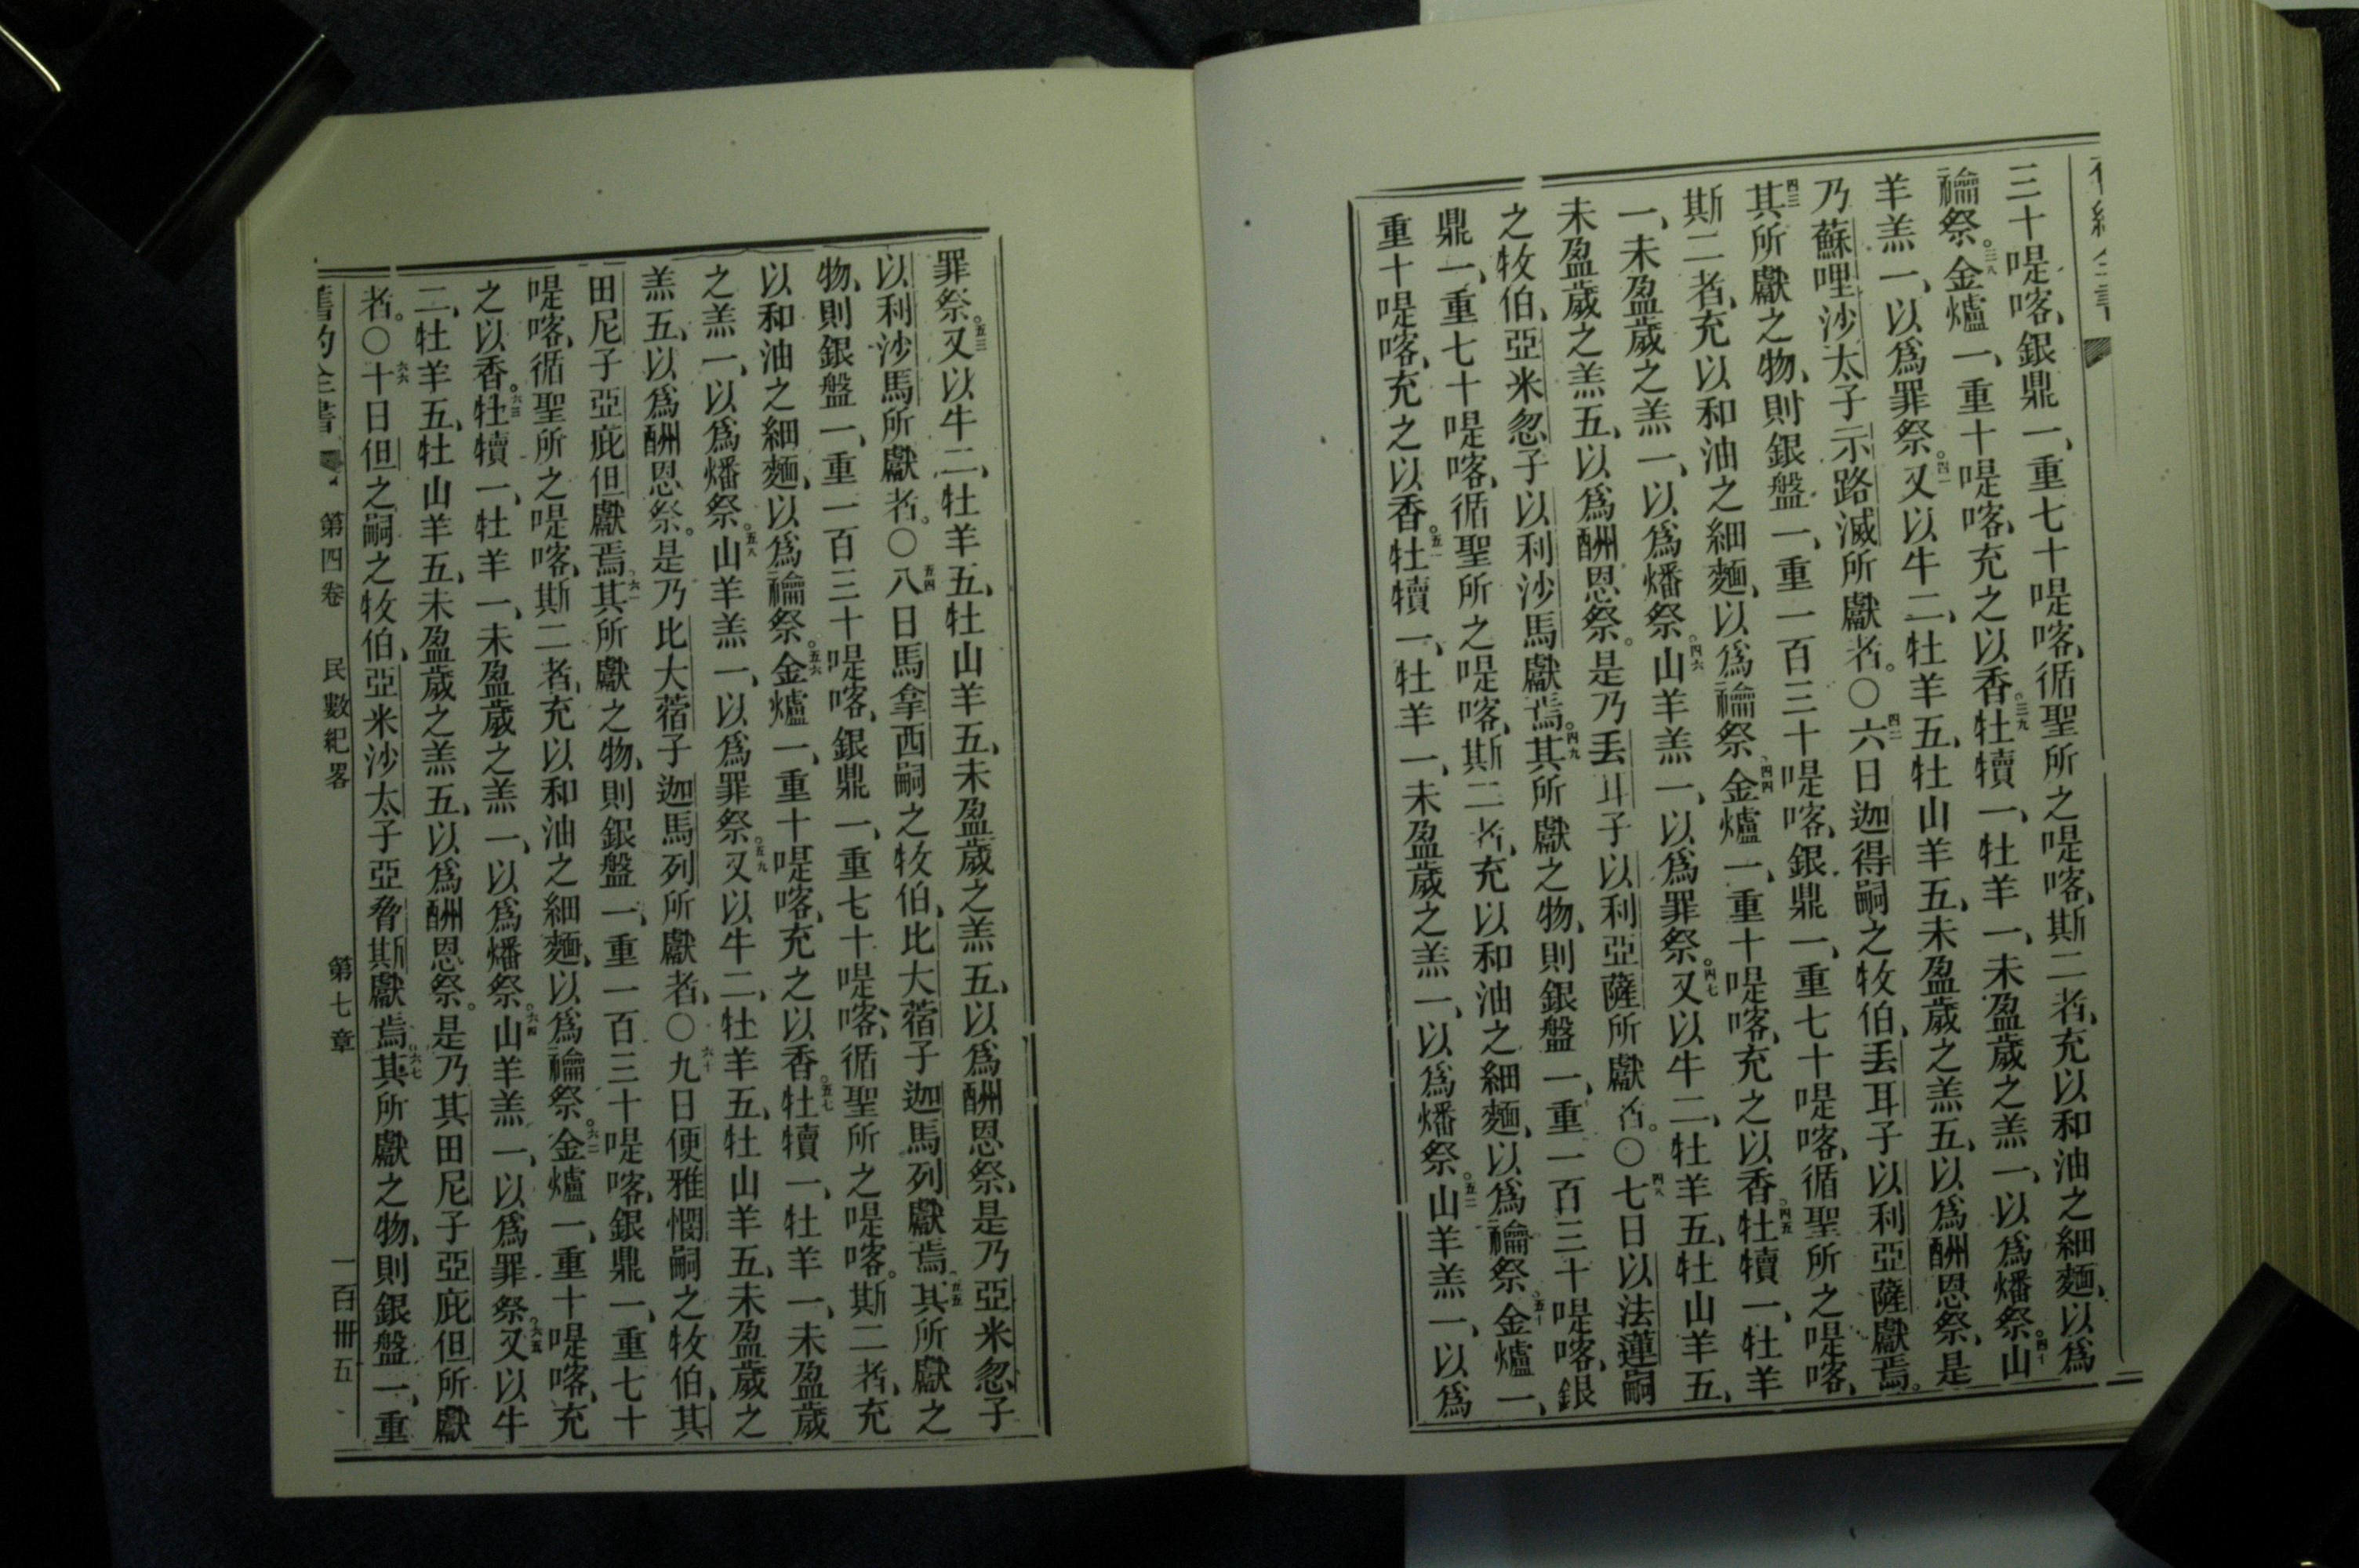 三十㖷喀、銀鼎一、重七十㖷喀、循聖所之㖷喀、斯二者、充以和油之細麵、以爲
禴祭。三八金爐一、重十㖷喀、充之以香。三九牡犢一、牡羊一、未盈歲之羔一、以爲燔祭。四十山
羊羔一、以爲罪祭。四一又以牛二、牡羊五、牡山羊五、未盈歲之羔五、以爲酬恩祭、是
乃蘇哩沙太子示路滅所獻者。〇四二六日迦得嗣之牧伯、丢耳子以利亞薩獻焉。
四三其所獻之物、則銀盤一、重一百三十㖷喀、銀鼎一、重七十㖷喀、循聖所之㖷喀、
斯二者、充以和油之細麵、以爲禴祭、四四金爐一、重十㖷喀、充之以香、四五牡犢一、牡羊
一、未盈歲之羔一、以爲燔祭。四六山羊羔一、以爲罪祭。四七又以牛二、牡羊五、牡山羊五、
未盈歲之羔五、以爲酬恩祭。是乃丢耳子以利亞薩所獻者。〇四八七日以法蓮嗣
之牧伯、亞米忽子以利沙馬獻焉。四九其所獻之物、則銀盤一、重一百三十㖷喀、銀
鼎一、重七十㖷喀、循聖所之㖷喀、斯二者、充以和油之細麵、以爲禴祭、五十金爐一、
重十㖷喀、充之以香。五一牡犢一、牡羊一、未盈歲之羔一、以爲燔祭。五二山羊羔一、以爲
罪祭。五三又以牛二、牡羊五、牡山羊五、未盈歲之羔五、以爲酬恩祭、是乃亞米忽子
以利沙馬所獻者。〇五四八日馬拿西嗣之牧伯、比大蓿子迦馬列獻焉、五五其所獻之
物、則銀盤一、重一百三十㖷喀、銀鼎一、重七十㖷喀、循聖所之㖷喀。斯二者、充
以和油之細麵、以爲禴祭。五六金爐一、重十㖷喀、充之以香。五七牡犢一、牡羊一、未盈歲
之羔一、以爲燔祭。五八山羊羔一、以爲罪祭。五九又以牛二、牡羊五、牡山羊五、未盈歲之
羔五、以爲酬恩祭。是乃比大蓿子迦馬列所獻者、〇六十九日便雅憫嗣之牧伯、其
田尼子亞庇但獻焉、六一其所獻之物、則銀盤一、重一百三十㖷喀、銀鼎一、重七十
㖷喀、循聖所之㖷喀、斯二者、充以和油之細麵、以爲禴祭。六二金爐一、重十㖷喀、充
之以香。六三牡犢一、牡羊一、未盈歲之羔一、以爲燔祭。六四山羊羔一、以爲罪祭、六五又以牛
二、牡羊五、牡山羊五、未盈歲之羔五、以爲酬恩祭。是乃其田尼子亞庇但所獻
者。〇六六十日但之嗣之牧伯、亞米沙太子亞脅斯獻焉。六七其所獻之物、則銀盤一、重
舊約全書 第四卷 民數紀畧 第七章 一百卌五